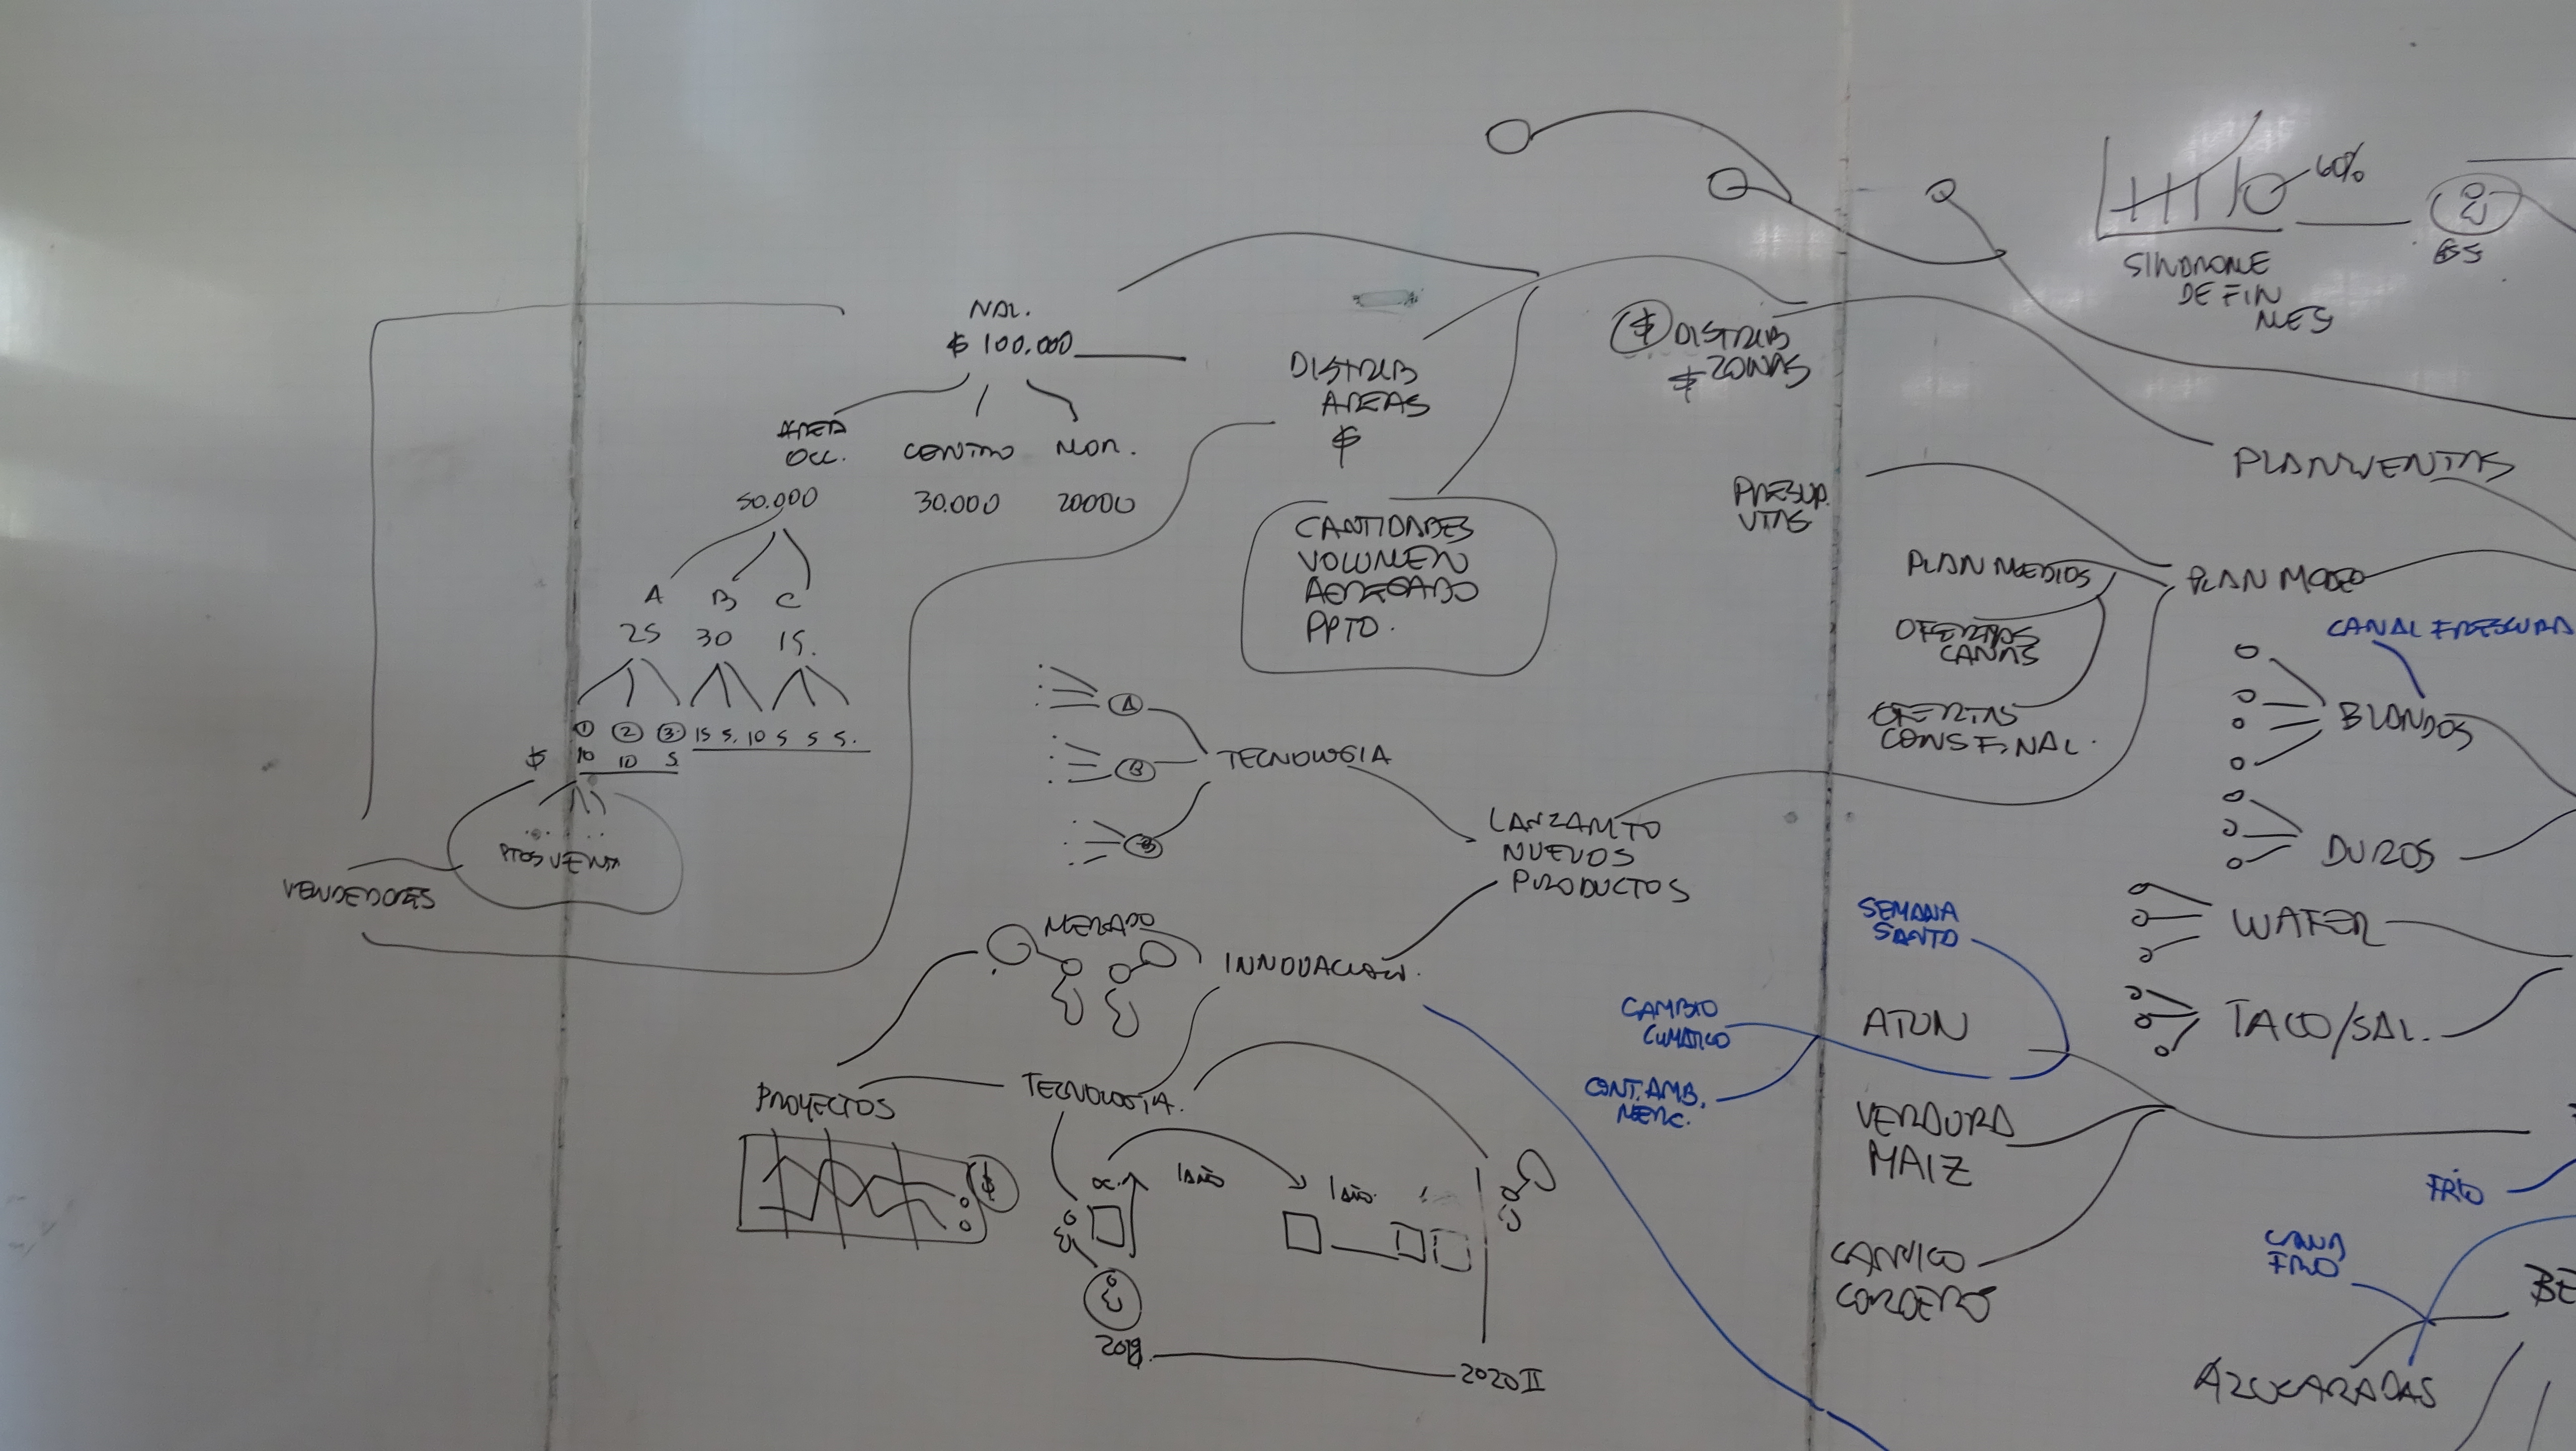 NAL.
$ 100.000
AREA
OCC.
CENTRO
NOR.
50.000
30.000
20000
A
B
C
25
30
15.
1
2
3
15 5. 10 5 5 5.
$
10
10
5
PTOS VENTA
VENDEDORES
DISTRIB
AREAS
$
CANTIDADES
VOLUMEN
AGREGADO
PPTO.
$
DISTRIB
$ ZONAS
60%
SINDROME
DE FIN
MES
PLAN VENTAS
PRESUP.
VTAS
PLAN MEDIOS
PLAN MCDEO
OFERTAS
CANAS
OFERTAS
CONS FINAL.
CANAL FRESCURA
BLANDOS
DUROS
WAFER
TACO/SAL.
A
B
TECNOLOGIA
LANZAMTO
NUEVOS
PRODUCTOS
MERCADO
INNOVACION.
PROYECTOS
TECNOLOGIA.
$
1 AÑO
1 AÑO.
2019.
2020 II
SEMANA
SANTO
CAMBIO
CLIMATICO
CONT. AMB.
MERC.
ATUN
VERDURA
MAIZ
CANNICO
CORDERO
FRIO
CANAL
FRIO
BE
AZUCARADAS